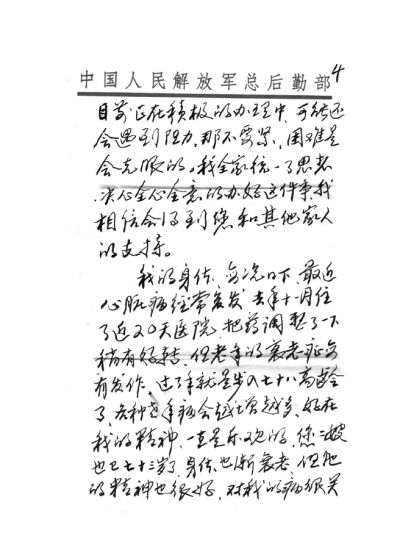 中国人民解放军总后勤部
4
目前正在积极的办理中,可能还
会遇到阻力,那不要紧,困难是
会克服的。我全家统一了思想
决心全心全意的办好这件事,我
相信会得到您和其他家人
的支持。
我的身体,每况日下,最近
心脏病经常复发,去年十一月住
了近20天医院,把药调整了一下
稍有好转,但老年的衰老症每
有发作,过了年就是步入七十八高龄
了,各种老年病会越来越多,好在
我的精神,一直是乐观的,您二嫂
也已七十三岁了,身体也渐衰老,但她
的精神也很好,对我的病很关